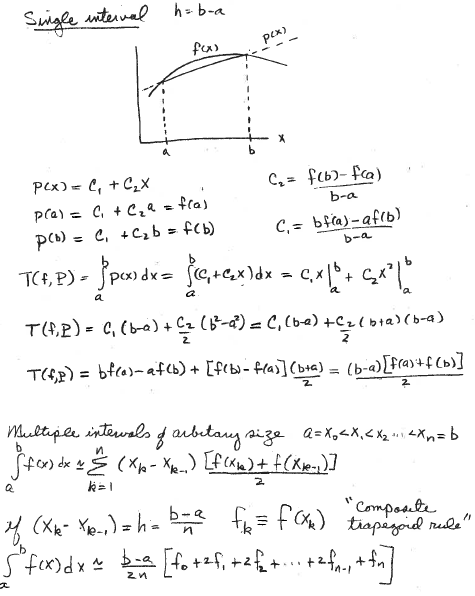 Single interval h = b-a
f(x) p(x)
x
a b
p(x) = C₁ + C₂x C₂ = f(b) - f(a) / b-a
p(a) = C₁ + C₂a = f(a)
p(b) = C₁ + C₂b = f(b) C₁ = bf(a) - af(b) / b-a
T(f,P) = ∫ₐᵇ p(x) dx = ∫ₐᵇ (C₁+C₂x) dx = C₁x|ₐᵇ + C₂x²|ₐᵇ
T(f,P) = C₁(b-a) + C₂/2 (b²-a²) = C₁(b-a) + C₂/2 (b+a)(b-a)
T(f,P) = bf(a) - af(b) + [f(b) - f(a)] (b+a)/2 = (b-a)[f(a)+f(b)]/2
Multiple intervals of arbitary size a = x₀ < x₁ < x₂ ... < xₙ = b
∫ₐᵇ f(x) dx ≃ Σₖ₌₁ⁿ (xₖ - xₖ₋₁) [f(xₖ) + f(xₖ₋₁)]/2
if (xₖ - xₖ₋₁) = h = b-a/n fₖ ≡ f(xₖ) "Composite trapezoid rule"
∫ₐᵇ f(x) dx ≃ b-a/2n [f₀ + 2f₁ + 2f₂ + ... + 2fₙ₋₁ + fₙ]